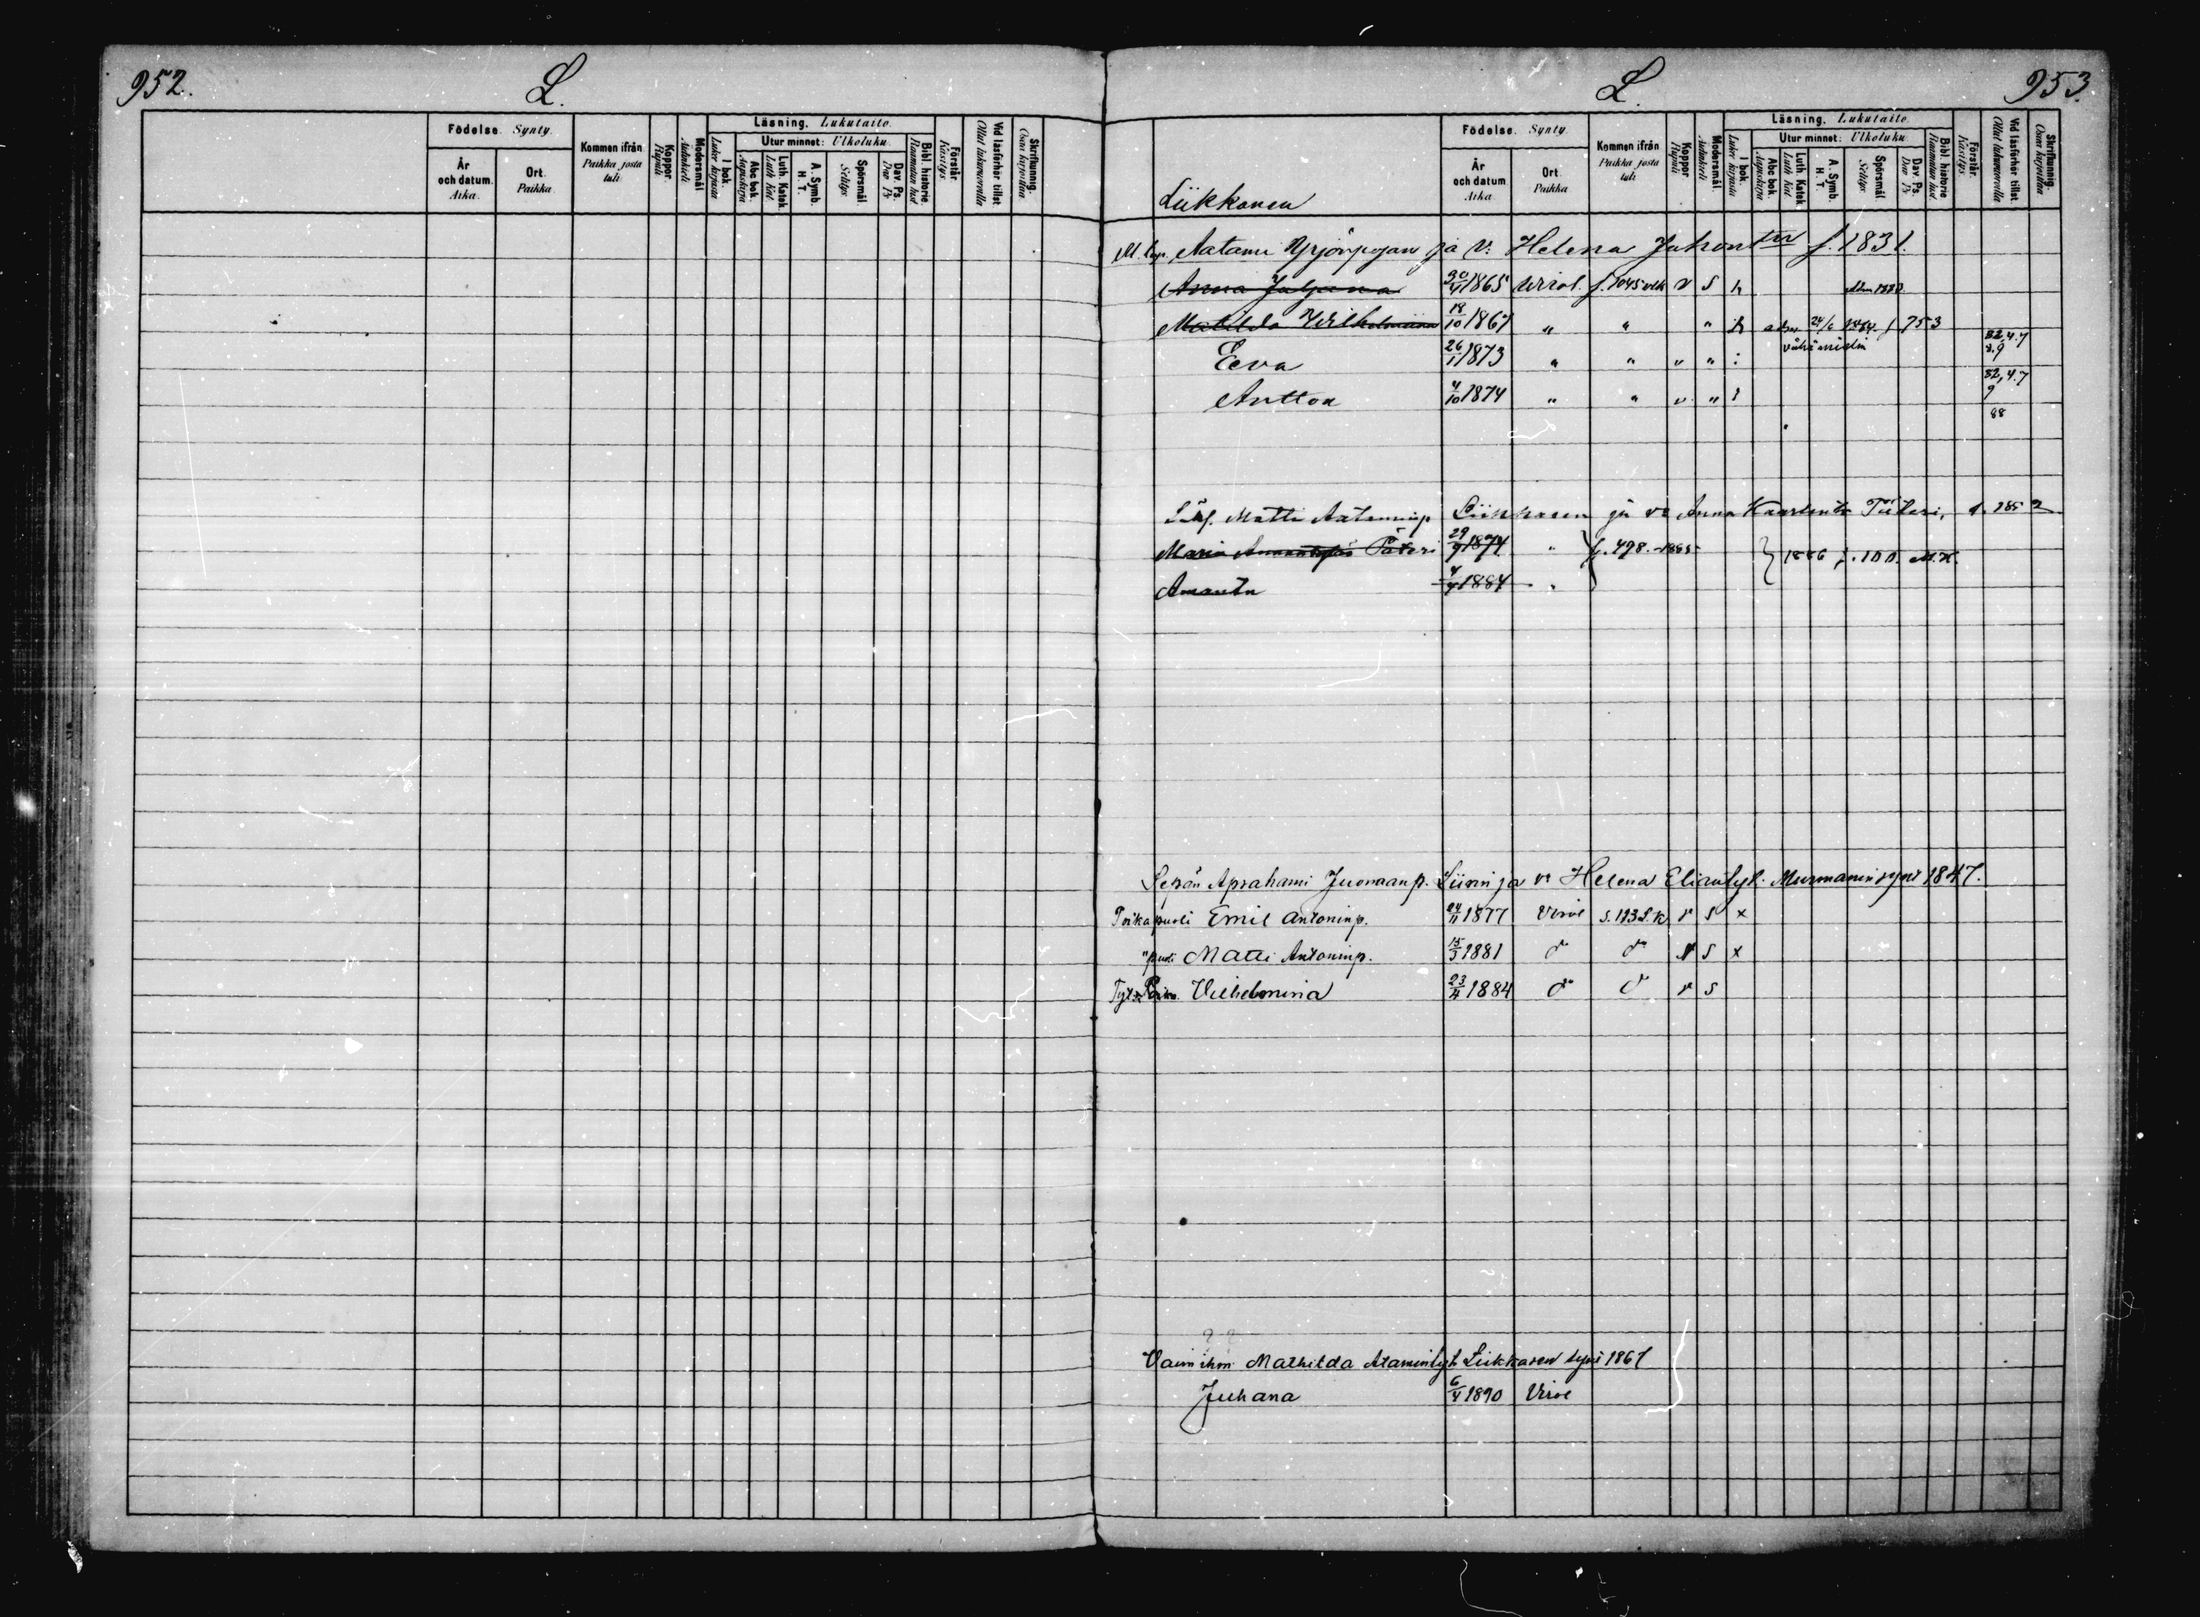 952.
L.
Födelse. Synty.
År och datum. Aika.
Ort. Paikka.
Kommen ifrån Paikka josta tuli
Koppor. Rupuli
Modersmål Äidinkieli
Läsning. Lukutaito.
I bok. Lukee kirjasta
Utur minnet: Ulkoluku.
Abc bok. Aapiskirja
Luth. Katek. Luth Kat.
A. Symb. H. T.
Spörsmål. Selitys
Dav. Ps. Dav Ps
Bibl. historie Raamatun hist
Förstår Käsitys
Vid läsförhör tillst Ollut lukuvuorolla
Skriftunnig. Osaa kirjoittaa
L.
953.
Födelse. Synty.
År och datum Aika.
Ort. Paikka
Kommen ifrån Paikka josta tuli
Koppor Rupuli
Modersmål. Äidinkieli
Läsning. Lukutaito
I bok. Lukee kirjasta
Utur minnet: Ulkoluku.
Abc bok. Aapiskirja
Luth. Katek Luth Kat
A. Symb. H. T.
Spörsmål Selitys
Dav. Ps. Dav Ps
Bibl. historie Raamatun hist
Förstår Käsitys
Vid läsförhör tillst Ollut lukuvuorolla
Skriftunnig. Osaa kirjoittaa
Liikkonen
Aatamu Yrjönpojan ja v: Helena Juhontr f. 1831.
Anna 30/4 1865 Virol. f. 1045 v S h
Matilda Wilhelmiina 19/10 1867 " " " h 24/6 1884 f 753
32,4.7
Eeva 26/1 1873 " " " " : 8,9
32,4.7
Antton 4/10 1874 " " v " 9
88
Matti Aataminp Liikkasen ja vo Anna Kaarlentr 1852
Maria 29/9 1874 " f. 498. 1885 } 1886 f. 100. M.K.
Amanta 4/9 1884 "
Sepän Aprahami Juonaanp. Liinin ja vo Helena Eliantyt. Murmanin synt 1847.
Poikapuoli Emil Antoninp. 24/11 1877 Virol S. 193 S.k r S x
"puoli Matti Antoninp. 15/3 1881 do do r S x
Vilhelmina 23/4 1884 do do r S
? ?
Vaim ihm Mathilda Atamintyt Liikkasen synt 1867
Juhana 6/4 1890 Virol